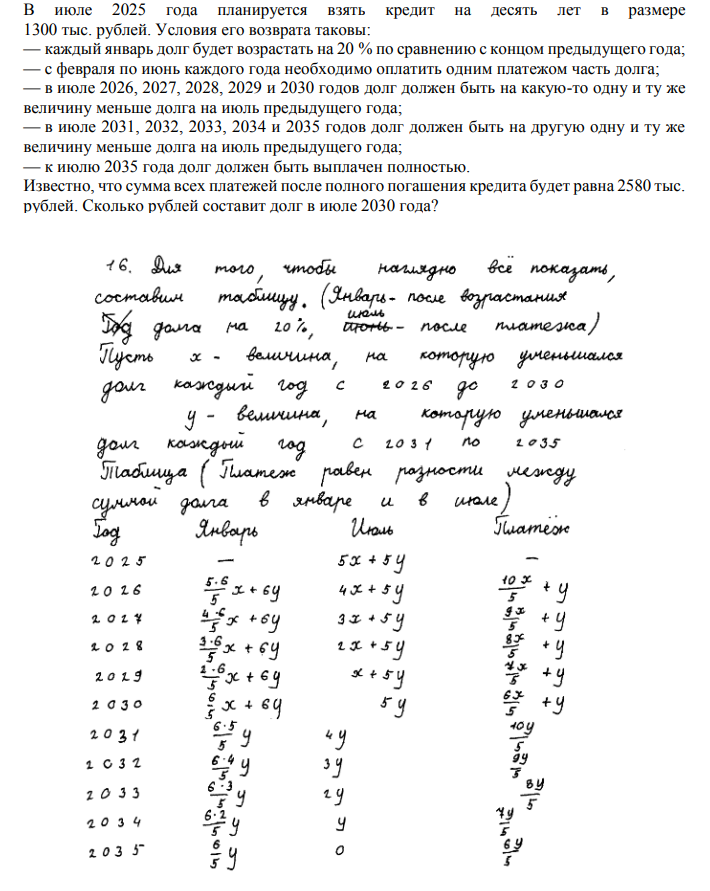 В июле 2025 года планируется взять кредит на десять лет в размере
1300 тыс. рублей. Условия его возврата таковы:
— каждый январь долг будет возрастать на 20 % по сравнению с концом предыдущего года;
— с февраля по июнь каждого года необходимо оплатить одним платежом часть долга;
— в июле 2026, 2027, 2028, 2029 и 2030 годов долг должен быть на какую-то одну и ту же
величину меньше долга на июль предыдущего года;
— в июле 2031, 2032, 2033, 2034 и 2035 годов долг должен быть на другую одну и ту же
величину меньше долга на июль предыдущего года;
— к июлю 2035 года долг должен быть выплачен полностью.
Известно, что сумма всех платежей после полного погашения кредита будет равна 2580 тыс.
рублей. Сколько рублей составит долг в июле 2030 года?
16. Для того, чтобы наглядно всё показать,
составим таблицу. (Январь - после возрастания
Год долга на 20%, июнь июль - после платежа)
Пусть x - величина, на которую уменьшался
долг каждый год с 2026 до 2030
y - величина, на которую уменьшался
долг каждый год с 2031 по 2035
Таблица (Платеж равен разности между
суммой долга в январе и в июле)
Год Январь Июль Платёж
2025 — 5x + 5y —
2026 5·6/5 x + 6y 4x + 5y 10x/5 + y
2027 4·6/5 x + 6y 3x + 5y 9x/5 + y
2028 3·6/5 x + 6y 2x + 5y 8x/5 + y
2029 2·6/5 x + 6y x + 5y 7x/5 + y
2030 6/5 x + 6y 5y 6x/5 + y
2031 6·5/5 y 4y 10y/5
2032 6·4/5 y 3y 9y/5
2033 6·3/5 y 2y 8y/5
2034 6·2/5 y y 7y/5
2035 6/5 y 0 6y/5